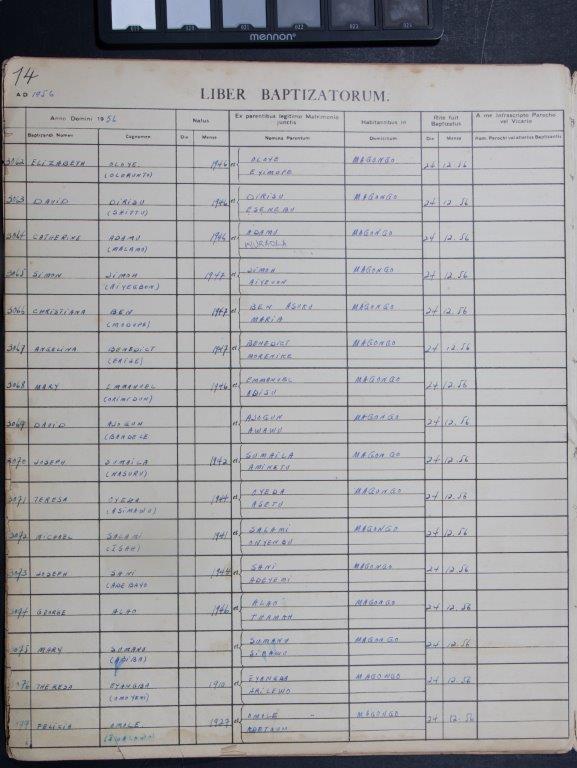 019 020 021 022 023
mennon
14
AD 1956
LIBER BAPTIZATORUM.
Anno Domini 1956 Natus Ex parentibus legitimo Matrimonio junctis Habitantibus in Rite fuit Baptizatus A me infrascripto Parocho vel Vicario
Baptizandi Nomen Cognomen Die Mense Nomina Parentum Domicilium Die Mense Nom. Parochi vel alterius Baptizantis
3062 ELIZABETH OLOYE 1946 et OLOYE MAGONGO 24 12.56
(OLORUNTO) EYIMOFE
3063 DAVID DIRISU 1946 et DIRISU MAGONGO 24 12.56
(SHITTU) ESENEBU
3064 CATHERINE ADAMU 1946 et ADAMU MAGONGO 24 12.56
(MALAMO) WURAOLA
3065 SIMON SIMON 1947 et SIMON MAGONGO 24 12.56
(AIYEGBON) AIYEVON
3066 CHRISTIANA BEN 1947 et BEN ASUKU MAGONGO 24 12.56
(MODUPE) MARIA
3067 ANGELINA BENEDICT 1947 et BENEDICT MAGONGO 24 12.56
MORENIKE
3068 MARY EMMANUEL 1946 et EMMANUEL MAGONGO 24 12.56
(ORIMIDUN) ABISU
3069 DAVID AJOGUN et AJOGUN MAGONGO 24 12.56
(BANDELE AWAWU
3070 JOSEPH SUMAILA 1942 et SUMAILA MAGONGO 24 12.56
(NASURU) AMINETU
3071 TERESA OYEDA 1944 et OYEDA MAGONGO 24 12.56
(ASIMAWU) ASETU
3072 MICHAEL SALAMI 1941 et SALAMI MAGONGO 24 12.56
(ISAH) ONYENBU
3073 JOSEPH SANI 1944 et SANI MAGONGO 24 12.56
(ADEBAYO ADEYEMI
3074 GEORGE ALAO 1946 et ALAO MAGONGO 24 12.56
3075 MARY SUMANU et SUMANU MAGONGO 24 12.56
(ABIBA) SIBAWU
3076 THERESA EYANGBA 1910 et EYANGBA MAGONGO 24 12.56
(OMOYEMI) ARILEWO
3077 FELICIA OMOLE 1927 et OMOLE MAGONGO 24 12.56